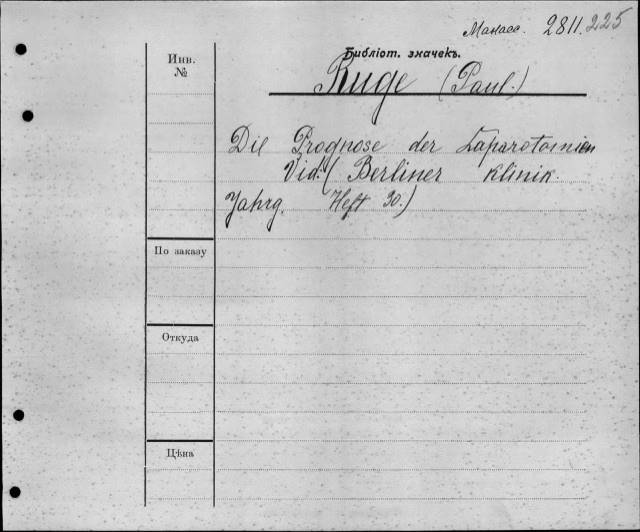 Манасс. 2811.225
Библіот. значекъ.
Инв.
№
Ruge (Paul.)
Die Prognose der Laparotomien
Vid. (Berliner Klinik.
Jahrg. Heft 30.)
По заказу
Откуда
Цѣна